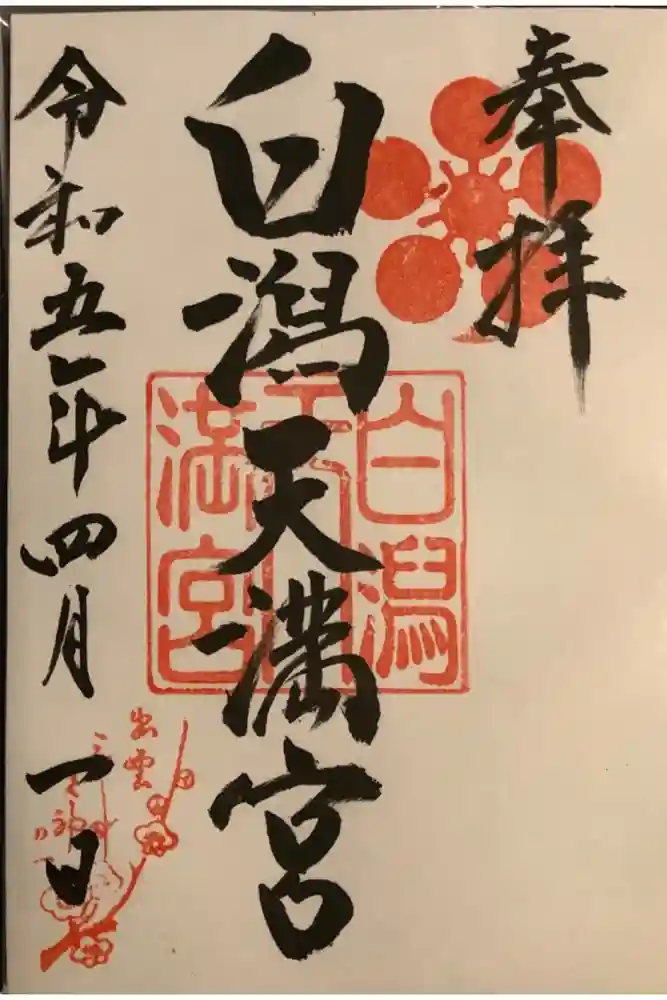 奉拝
白潟天満宮
令和五年四月一日
白潟
天
満宮
出雲